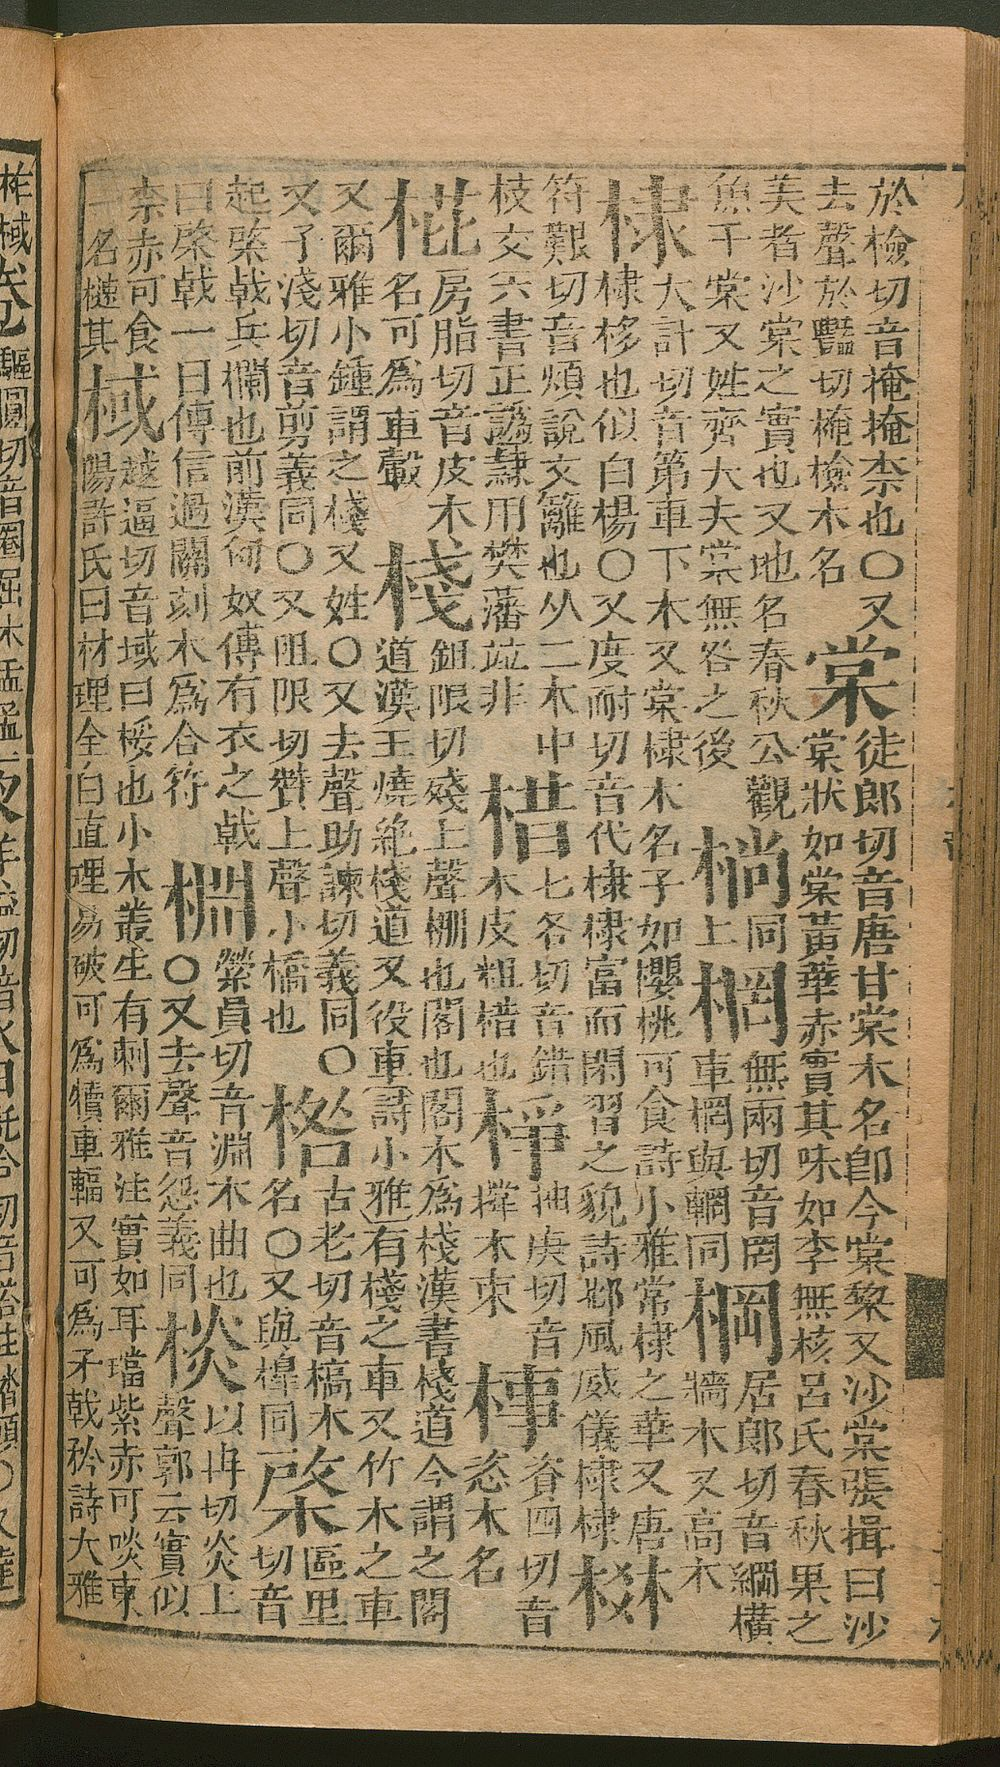 於檢切音掩掩柰也〇又
去聲於豔切㭺檢木名
棠
徒郎切音唐甘棠木名卽今棠黎又沙棠張揖曰沙
棠狀如棠黃華赤實其味如李無核呂氏春秋果之
美者沙棠之實也又地名春秋公觀
魚于棠又姓齊大夫棠無咎之後
㭻
同
上
棢
無兩切音罔
車棢與輞同
棡
居郎切音綱橫
牆木又高木
棣
大計切音第車下木又棠棣木名子如櫻桃可食詩小雅常棣之華又唐
棣栘也似白楊〇又度耐切音代棣棣富而閑習之貌詩邶風威儀棣棣
棥
符艱切音煩說文籬也从二木中
枝交六書正譌隸用樊藩竝非
棤
七各切音錯
木皮粗棤也
棦
抽庚切音
撐木束
資四切音
恣木名
房脂切音皮木
名可為車轂
棧
鉏限切殘上聲棚也閣也閣木為棧漢書棧道今謂之閣
道漢王燒絶棧道又役車詩小雅有棧之車又竹木之車
又爾雅小鍾謂之棧又姓〇又去聲助諫切義同〇
又子淺切音剪義同〇又阻限切贊上聲小橋也
古老切音槁木
名〇又與槹同
棨
區里
切音
起棨戟兵欄也前漢匈奴傳有衣之戟
曰棨戟一曰傳信過關刻木爲合符
棩
縈員切音淵木曲也
〇又去聲音怨義同
棪
以冉切炎上
聲郭云實似
柰赤可食
一名槤其
棫
越逼切音域曰桵也小木叢生有刺爾雅注實如耳璫紫赤可啖東
陽許氏曰材理全白直理易破可爲犢車輻又可爲矛戟矜詩大雅
柞棫